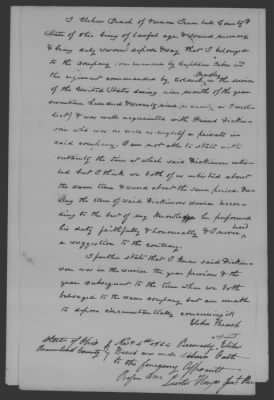 I Elihu Beach of Vernon Trumbull County &
State of Ohio being of lawful age & sound memory
& being duly sworn depose & say that I belonged
to the company commanded by Captain
the regiment commanded by Colonel Bradley in the service
of the United States during nine months of the year
seventeen hundred & seventy nine, as nearly as I recollect
& was well acquainted with Dickin-
son who was as well as myself a private in
said company. I am not able to state with
certainty the time at which said Dickinson enlis-
ted but I think we both of us enlisted about
the same time & served about the same period. Du-
ring the term of said Dickinsons service accor-
ding to the best of my knowledge he performed
his duty faithfully & honourably & I never heard
a suggestion to the contrary.
I further state that I knew said Dickin-
son was in the service the year previous & the
year subsequent to the time when we both
belonged to the same company but am unable
to depose circumstantially concerning it
Elihu Beach
State of Ohio Personally appeared Elihu
Trumbull County Beach and made solemn Oath
to the foregoing Affidavit
Before me